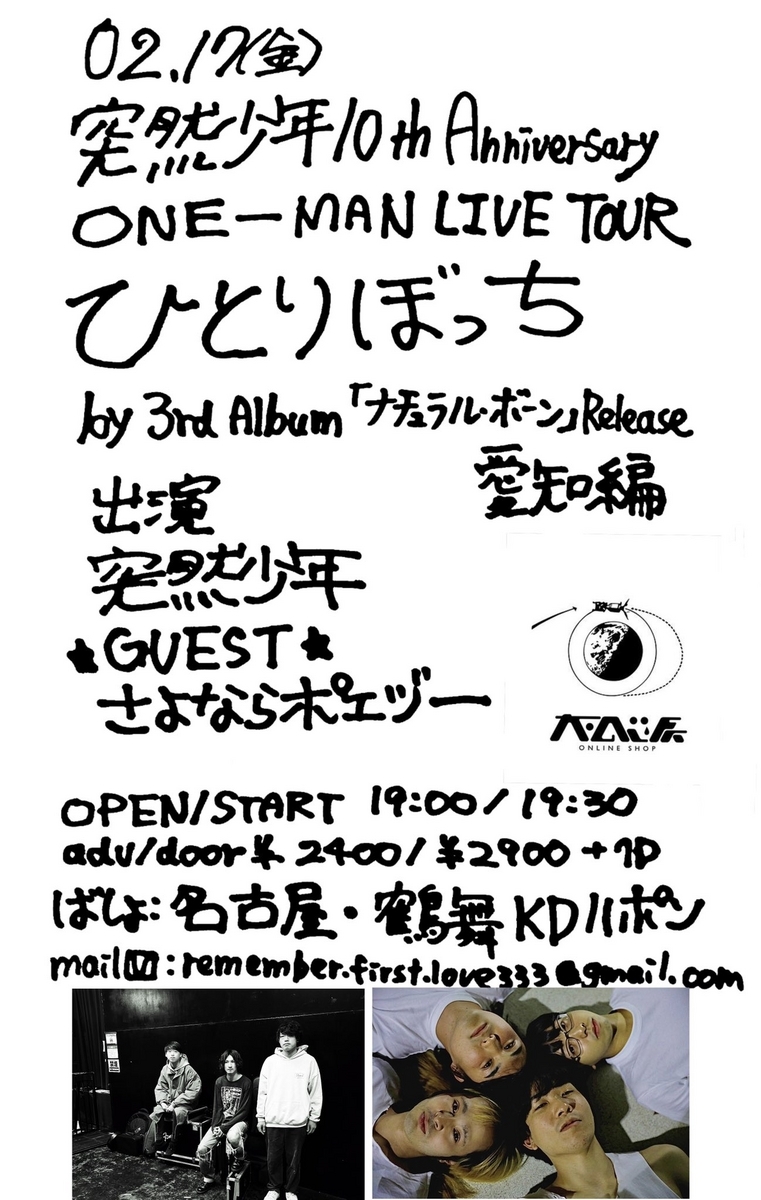 02.17(金)
突然少年10th Anniversary
ONE-MAN LIVE TOUR
ひとりぼっち
by 3rd Album「ナチュラル・ボーン」Release
愛知編
出演
突然少年
★GUEST★
さよならポエジー
ONLINE SHOP
OPEN/START 19:00/19:30
adv/door¥2400/¥2900+1D
ばしょ:名古屋・鶴舞KDハポン
mail:remember.first.love333@gmail.com